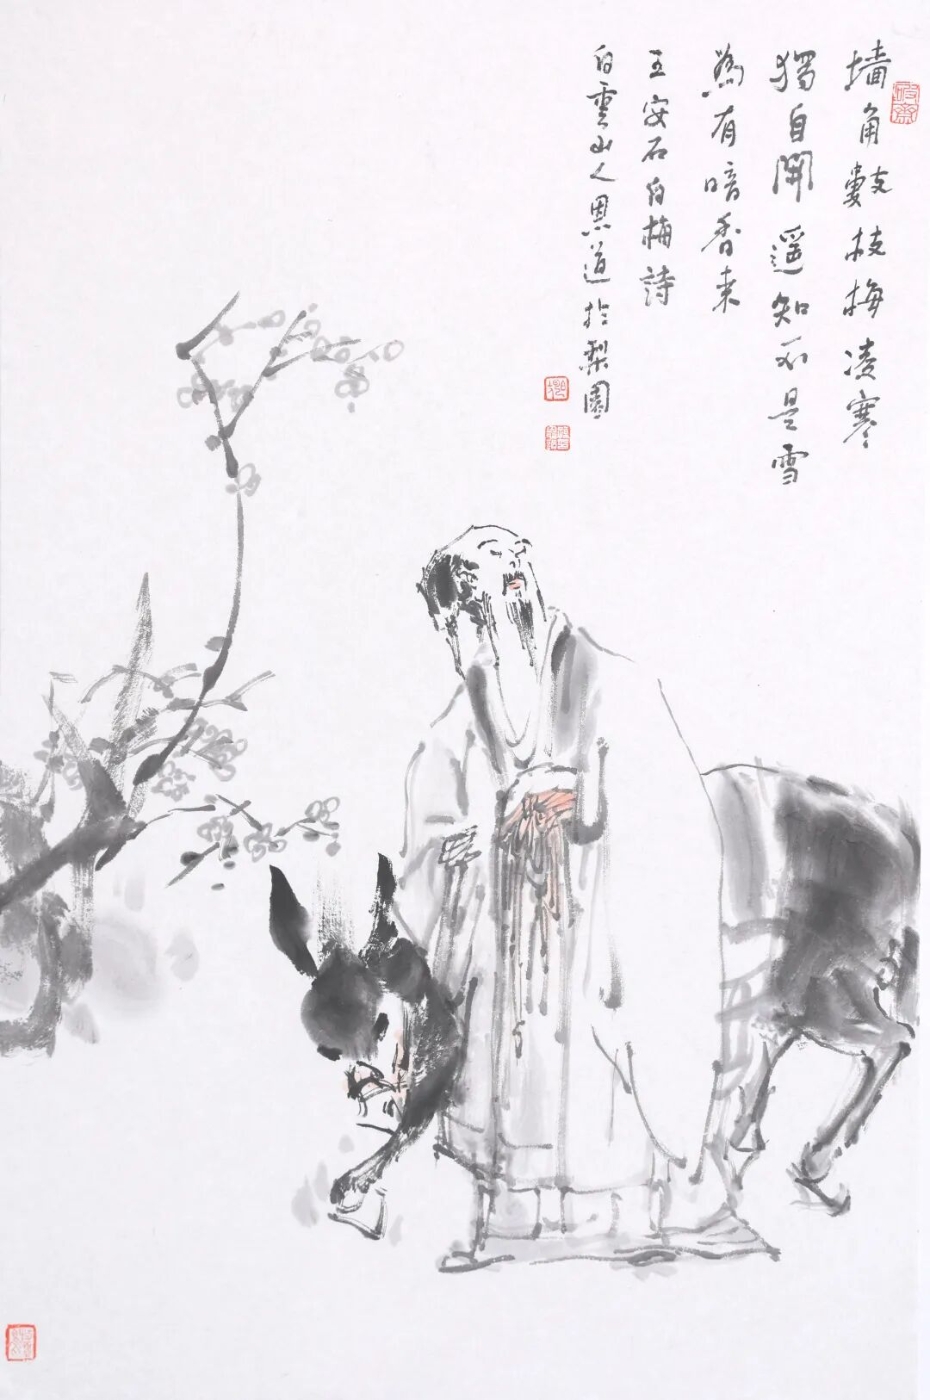 墙角數枝梅凌寒
獨自開遥知不是雪
為有暗香来
王安石白梅詩
白雲山人恩道於梨園